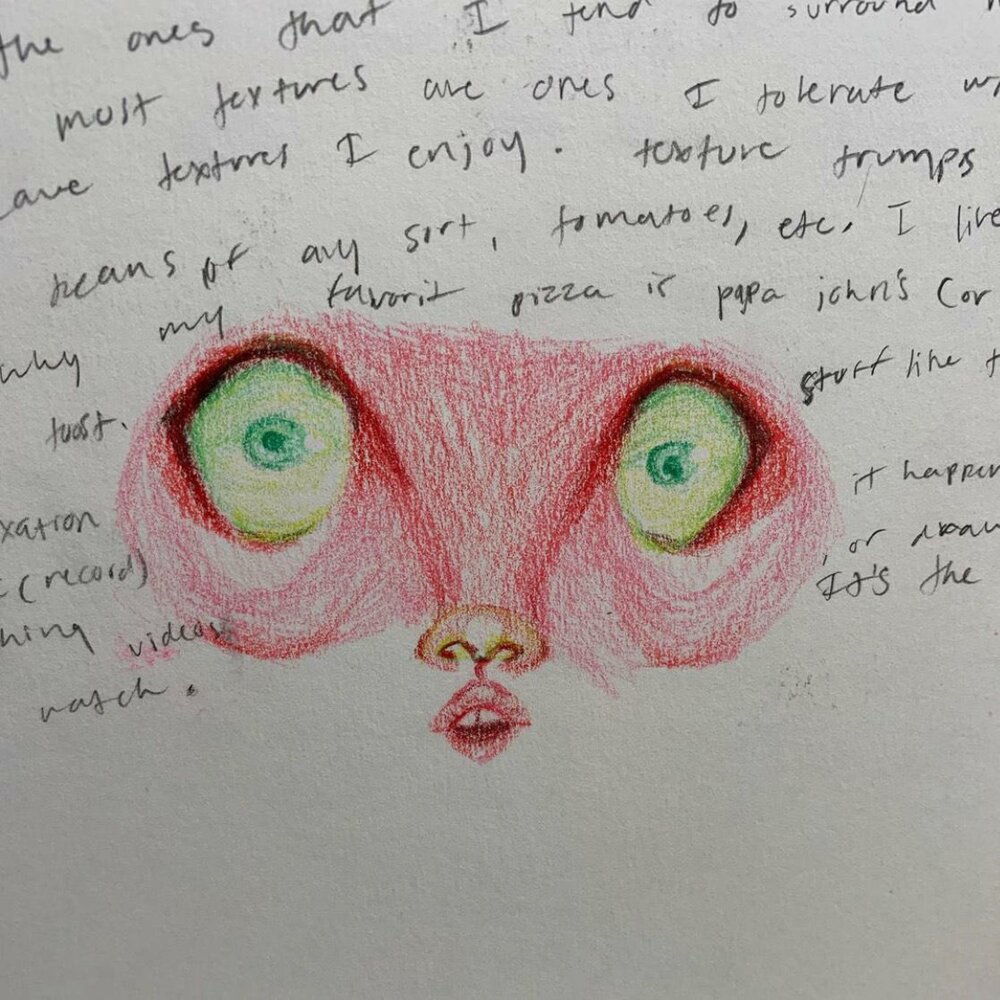 the ones that I tend to surround
most textures are ones I tolerate
textures I enjoy. texture trumps
beans of any sort, tomatoes, etc. I like
why my favorit pizza is papa john's cor
toast. stuff like
xation it happen
(record) , or
hing videos It's the
watch.